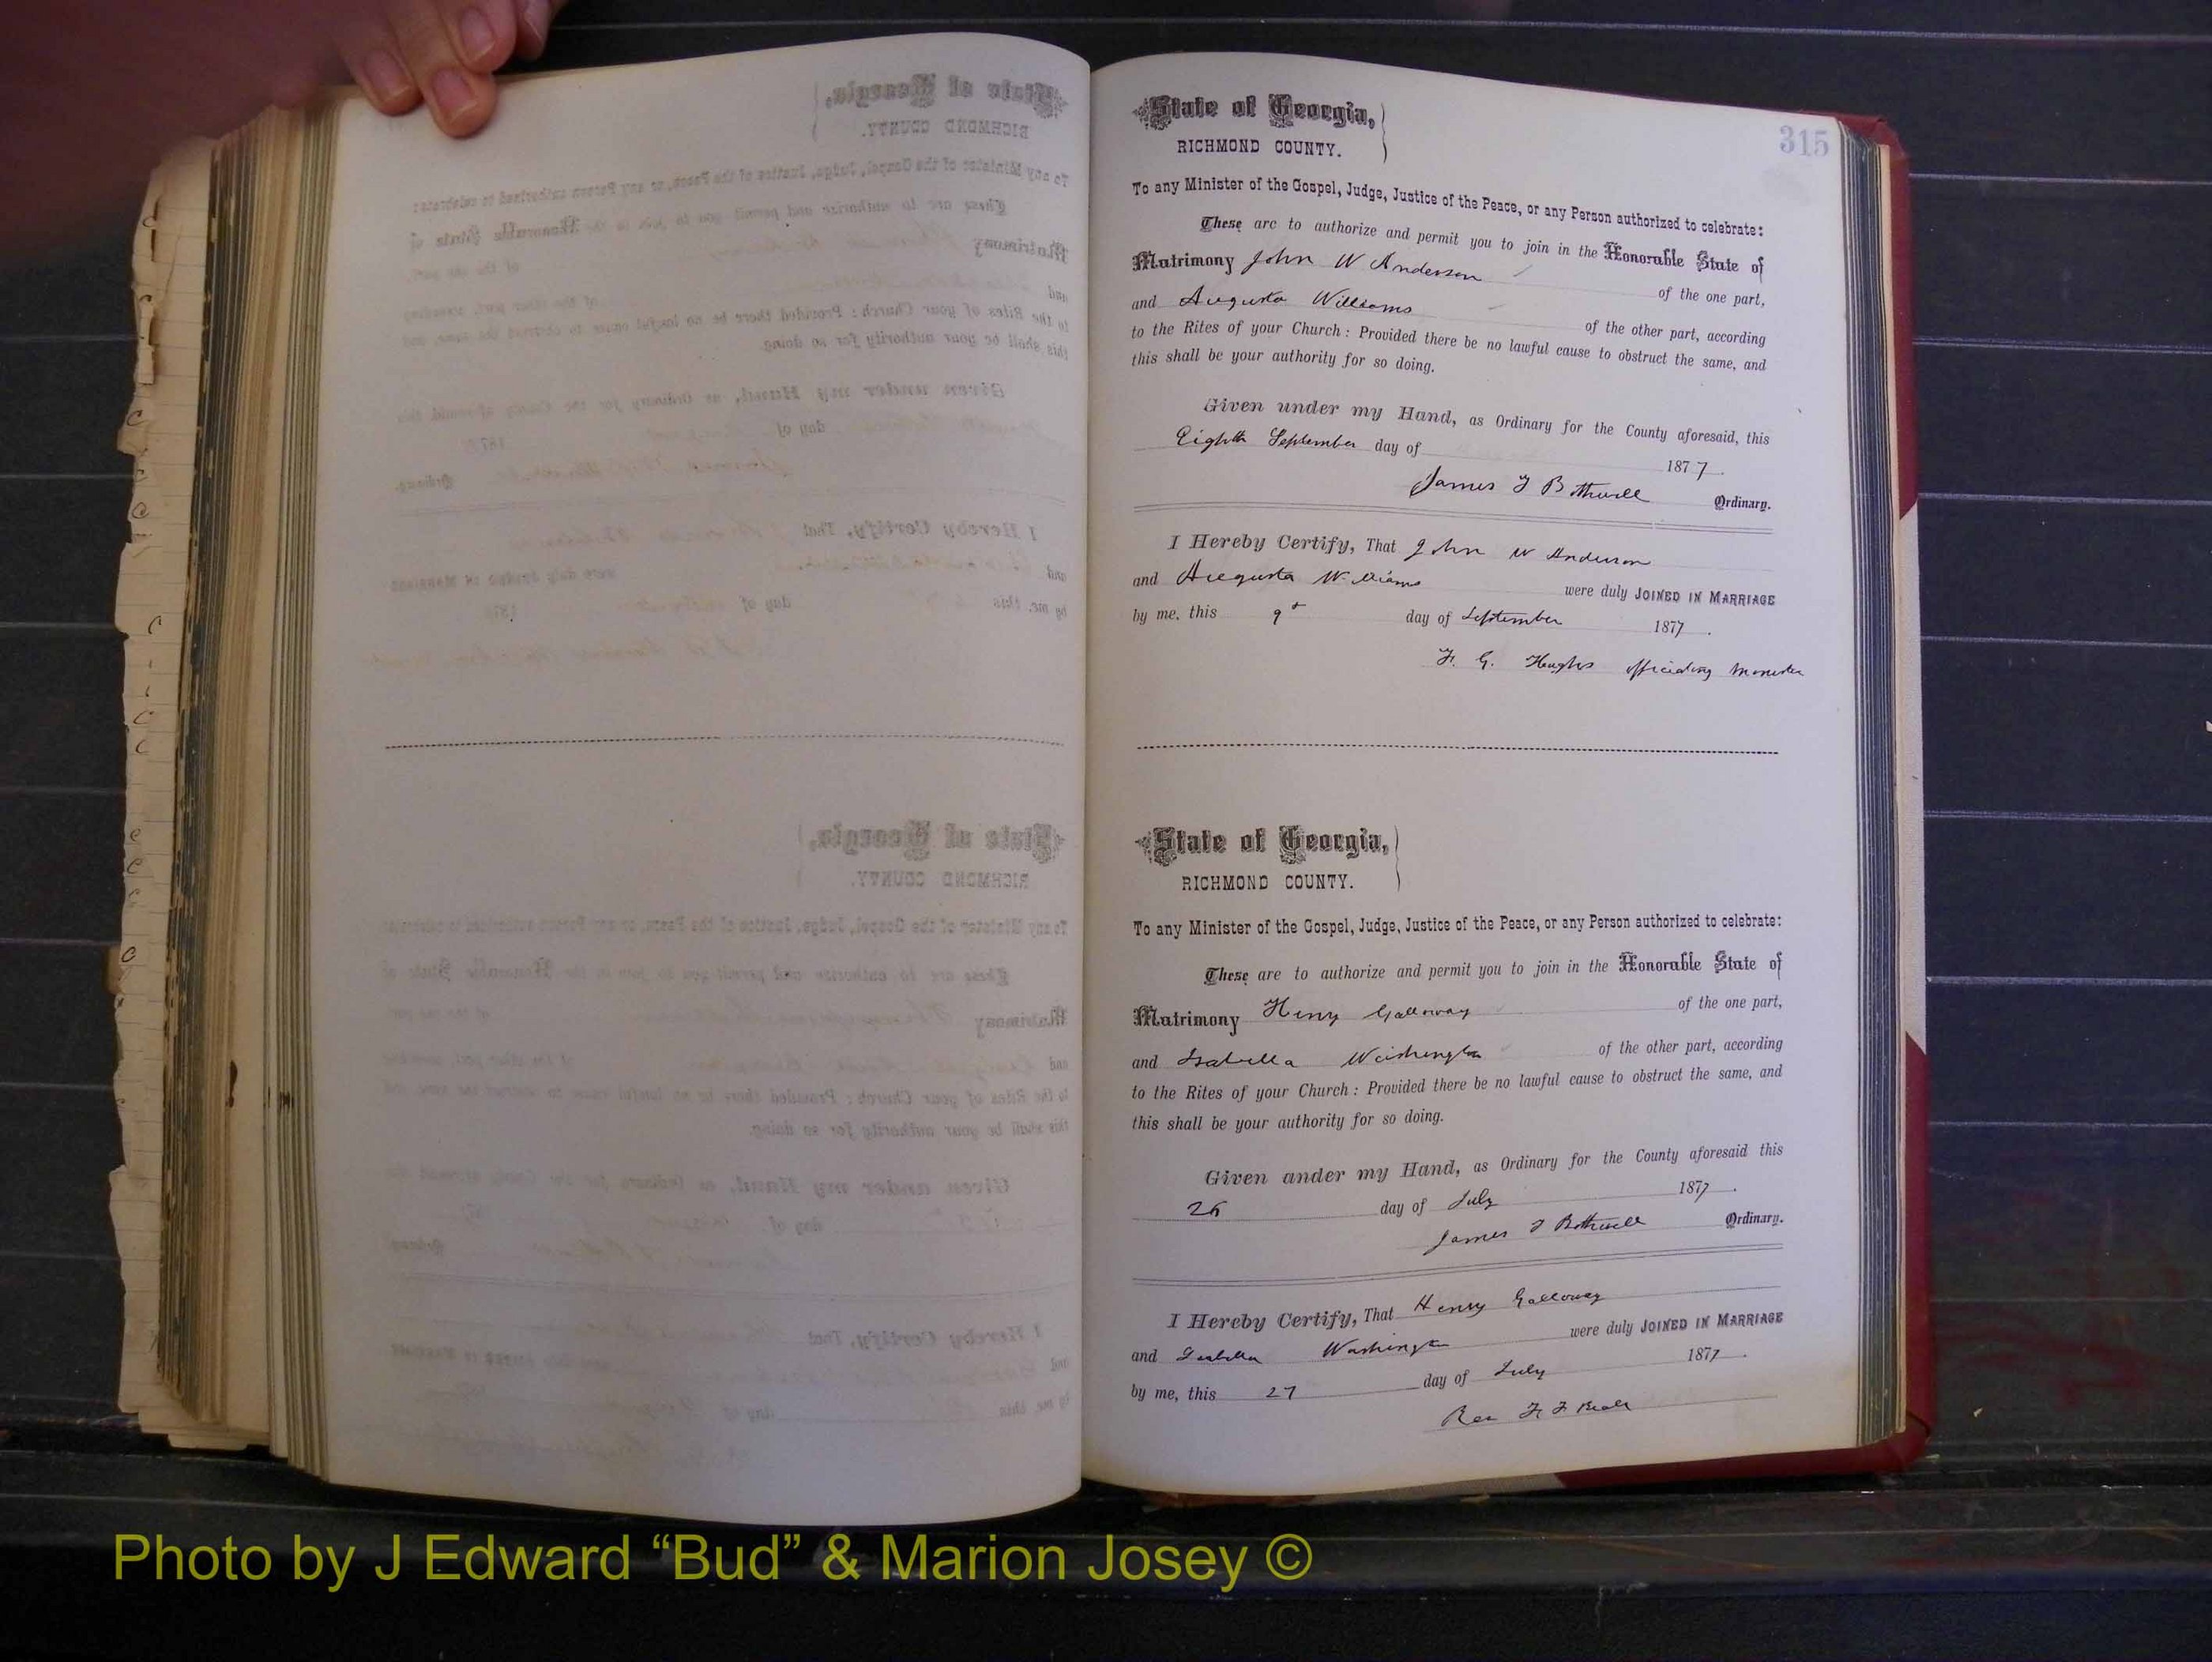 315
State of Georgia,
RICHMOND COUNTY.
To any Minister of the Gospel, Judge, Justice of the Peace, or any Person authorized to celebrate:
These are to authorize and permit you to join in the Honorable State of
Matrimony John W Anderson of the one part,
and Augusta Williams of the other part, according
to the Rites of your Church: Provided there be no lawful cause to obstruct the same, and
this shall be your authority for so doing.
Given under my Hand, as Ordinary for the County aforesaid, this
Eighth September day of 1877.
James F Bothwell Ordinary.
I Hereby Certify, That John W Anderson
and Augusta Williams were duly JOINED IN MARRIAGE
by me, this 9th day of September 1877.
F. G. Hughes officiating Minister
State of Georgia,
RICHMOND COUNTY.
To any Minister of the Gospel, Judge, Justice of the Peace, or any Person authorized to celebrate:
These are to authorize and permit you to join in the Honorable State of
Matrimony Henry Galloway of the one part,
and Isabella Washington of the other part, according
to the Rites of your Church: Provided there be no lawful cause to obstruct the same, and
this shall be your authority for so doing.
Given under my Hand, as Ordinary for the County aforesaid this
26 day of July 1877.
James F Bothwell Ordinary.
I Hereby Certify, That Henry Galloway
and Isabella Washington were duly JOINED IN MARRIAGE
by me, this 27 day of July 1877.
Rev
Photo by J Edward “Bud” & Marion Josey ©